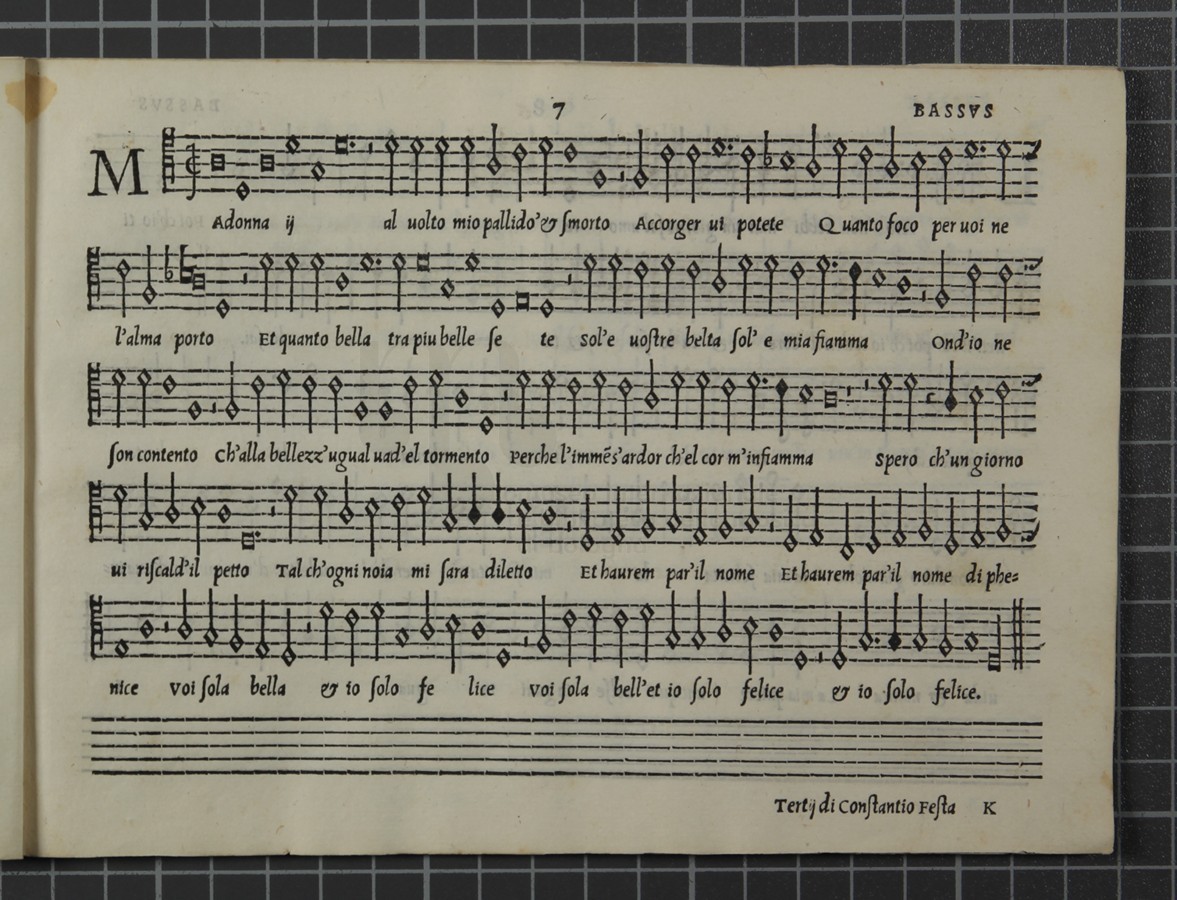 7 BASSVS
M
Adonna ij al uolto mio pallido'& ſmorto Accorger ui potete Quanto foco per uoi ne
l'alma porto Et quanto bella tra piu belle ſe te sol'e uoſtre belta ſol' e mia fiamma Ond'io ne
ſon contento Ch'alla bellezz'ugual uad'el tormento Perche l'immẽs'ardor ch'el cor m'infiamma Spero ch'un giorno
ui riſcald'il petto Tal ch'ogni noia mi ſara diletto Et haurem par'il nome Et haurem par'il nome di phe=
nice voi ſola bella & io ſolo fe lice voi ſola bell'et io ſolo felice & io ſolo felice.
Tertij di Conſtantio Feſta K